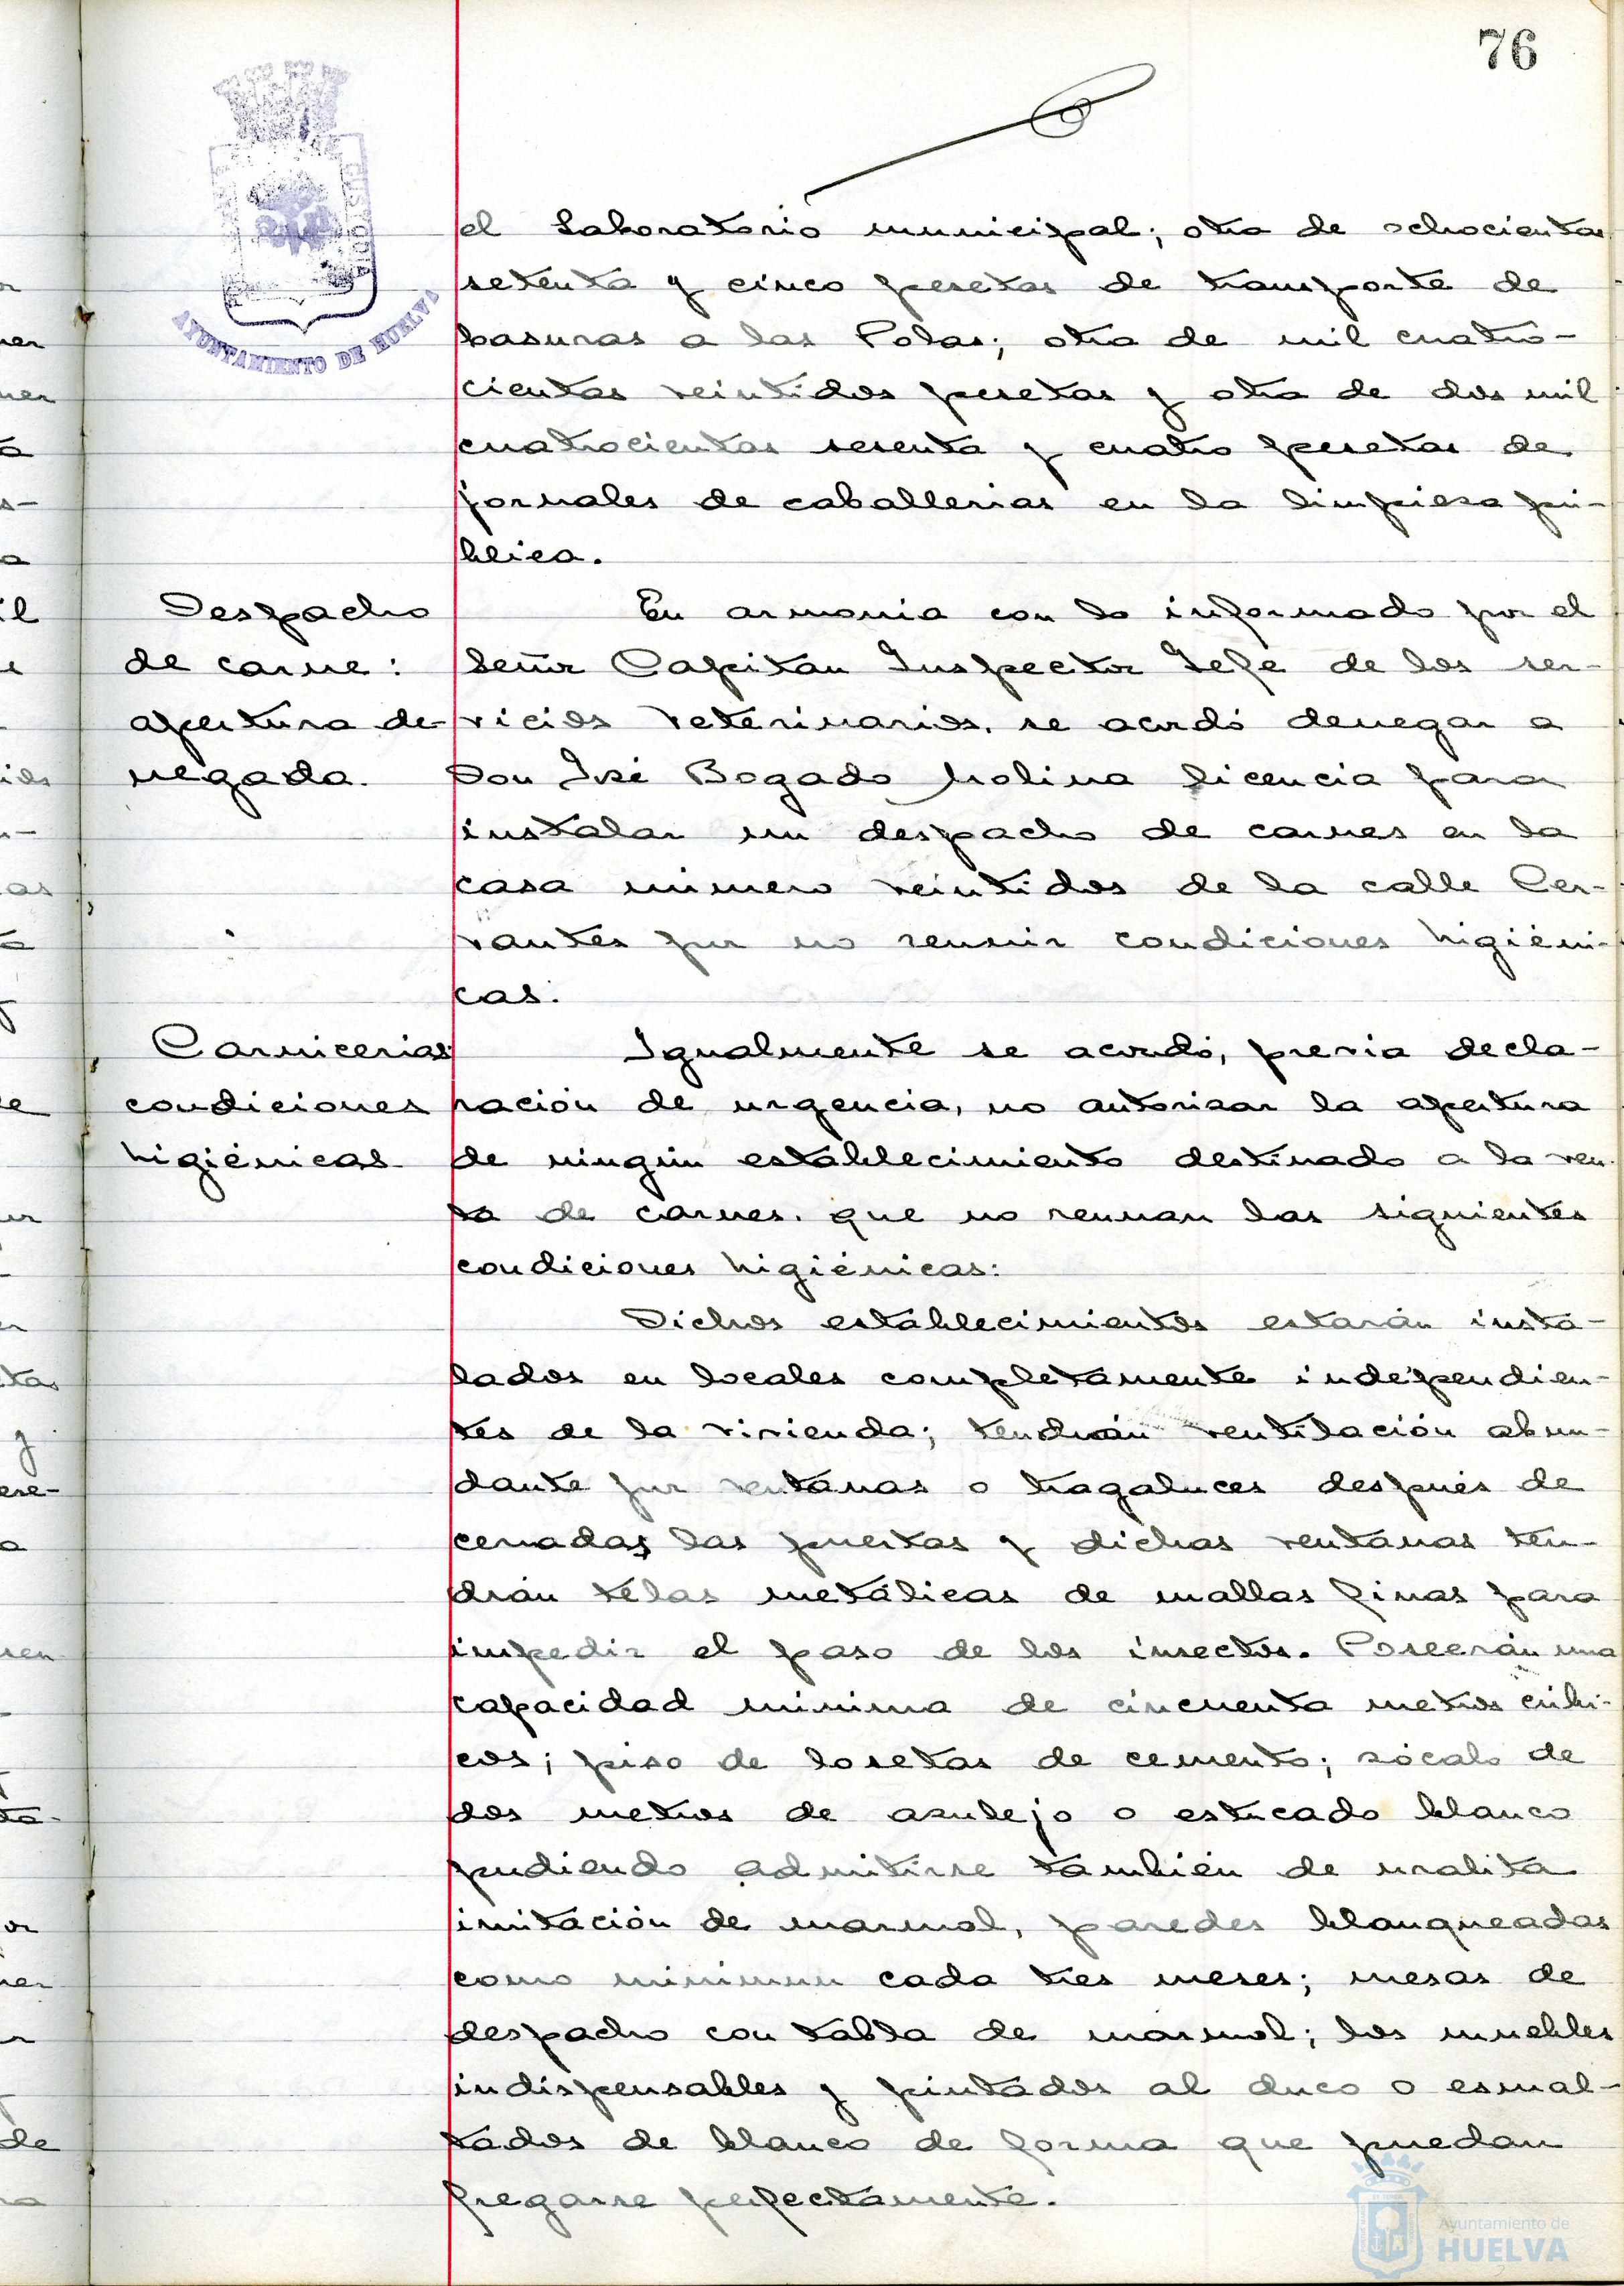 76
CUSTODIA
AYUNTAMIENTO DE HUELVA
el Laboratorio municipal; otra de ochocientas
setenta y cinco pesetas de transporte de
basuras a las Polas; otra de mil cuatro-
cientas veintidos pesetas y otra de dos mil
cuatrocientas sesenta y cuatro pesetas de
jornales de caballerias en la limpieza pú-
blica.
Despacho
de carne:
apertura de-
negada.
En armonia con lo informado por el
Señor Capitan Inspector Jefe de los ser-
vicios Veterinarios, se acordó denegar a
Don José Bogado Molina licencia para
instalar un despacho de carnes en la
casa número veintidos de la calle Cer-
vantes por no reunir condiciones higiéni-
cas.
Carnicerias:
condiciones
higiénicas
Igualmente se acordó, previa decla-
ración de urgencia, no autorizar la apertura
de ningún establecimiento destinado a la ven-
ta de carnes, que no reunan las siguientes
condiciones higiénicas:
Dichos establecimientos estarán insta-
lados en locales completamente independien-
tes de la vivienda; tendrán ventilación abun-
dante por ventanas o tragaluces después de
cerradas las puertas y dichas ventanas ten-
drán telas metálicas de mallas finas para
impedir el paso de los insectos. Poseerán una
capacidad minima de cincuenta metros cúbi-
cos; piso de losetas de cemento; zócalo de
dos metros de azulejo o estucado blanco
pudiendo admitirse también de uralita
imitación de marmol, paredes blanqueadas
como minimun cada tres meses; mesas de
despacho con tabla de marmol; los muebles
indispensables y pintados al duco o esmal-
tados de blanco de forma que puedan
fregarse perfectamente.
Ayuntamiento de
HUELVA